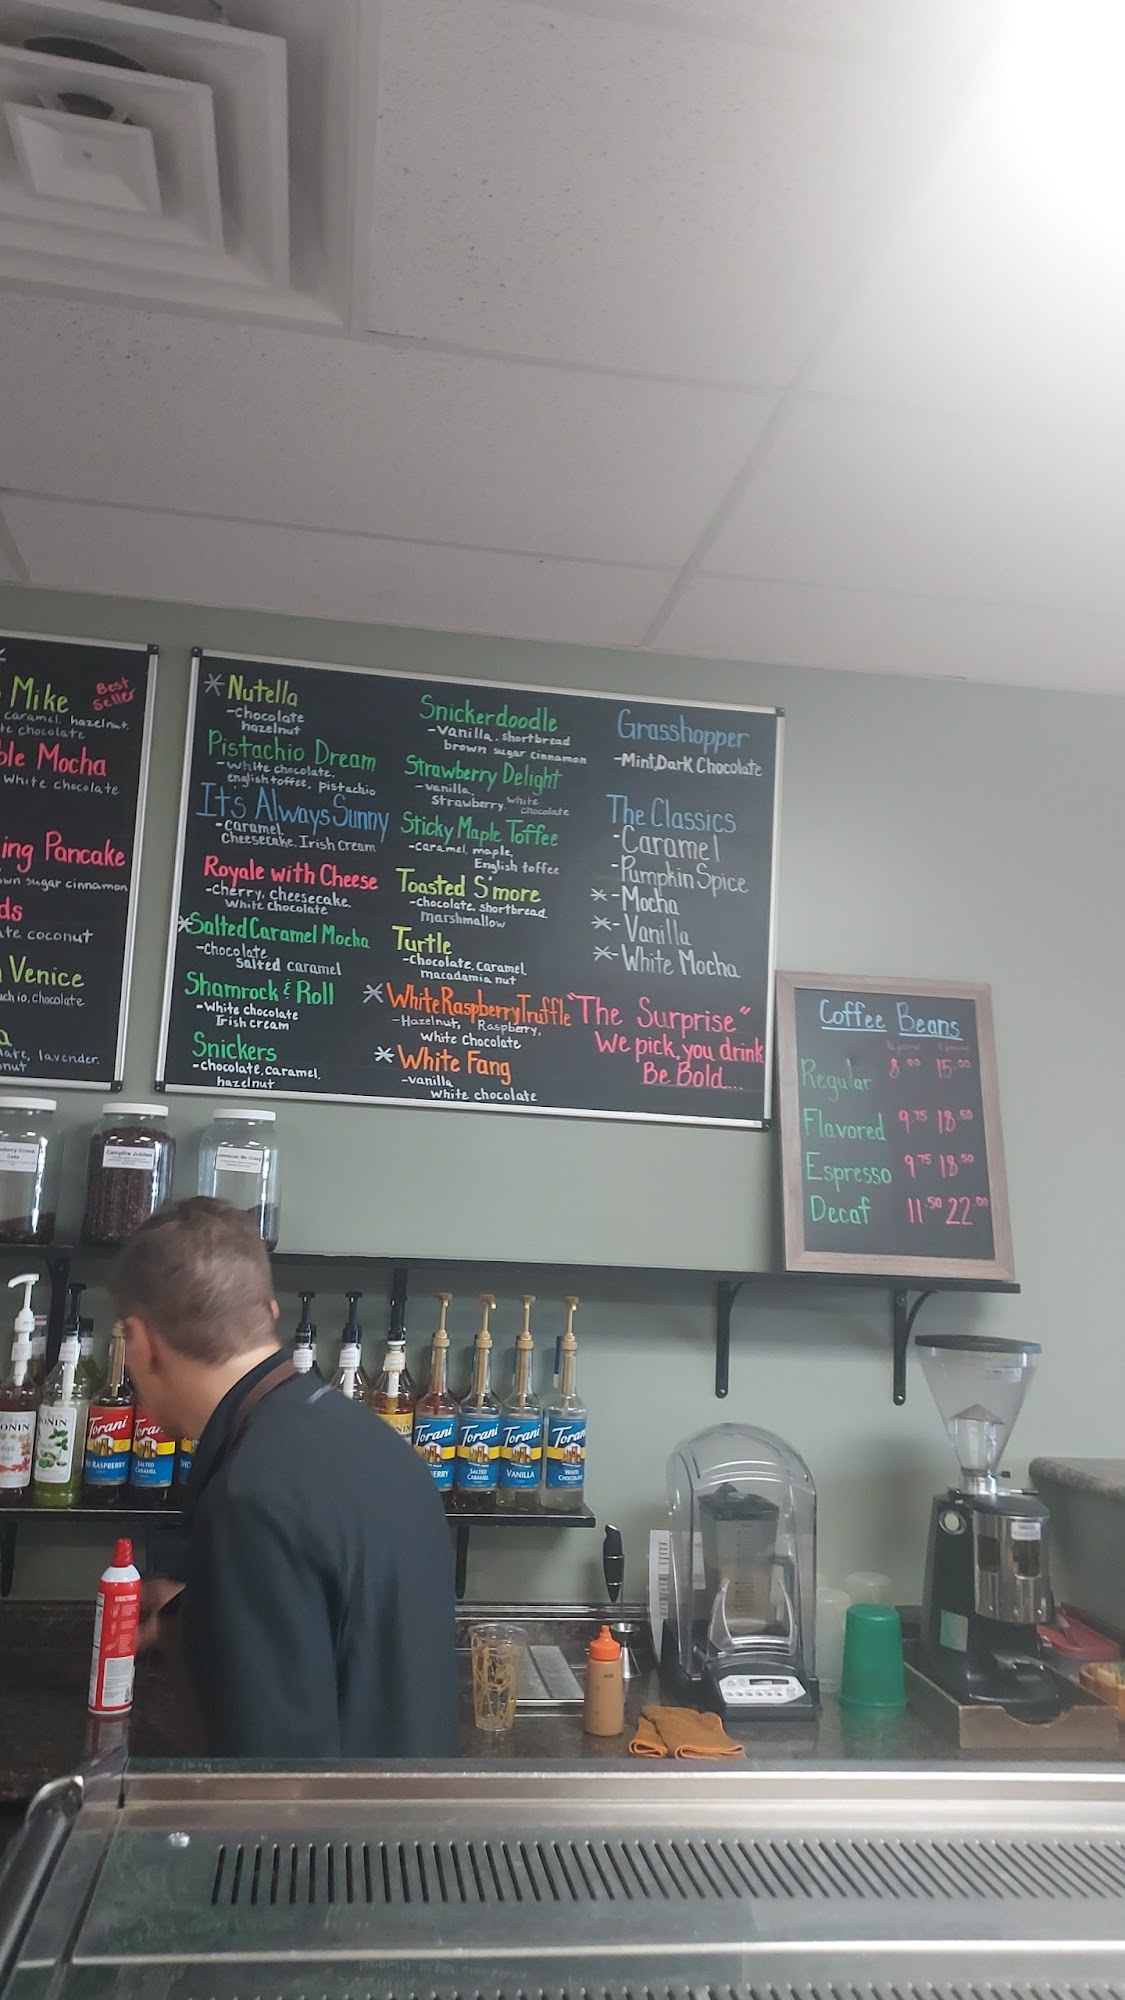 Mike
Best
Seller
caramel, hazelnut.
te chocolate
ble Mocha
White chocolate
ing Pancake
wn sugar cinnamon
ds
te coconut
Venice
achio, chocolate
a
late, lavender.
nut
*Nutella
-Chocolate
hazelnut
Pistachio Dream
-White chocolate,
english toffee, pistachio
It's Always Sunny
-caramel,
Cheesecake, Irish cream
Royale with Cheese
-cherry, cheesecake,
White chocolate
*Salted Caramel Mocha
-Chocolate,
Salted caramel
Shamrock & Roll
-White chocolate
Irish cream
Snickers
-chocolate, caramel,
hazelnut
Snickerdoodle
-vanilla, shortbread
brown sugar cinnamon
Strawberry Delight
-vanilla,
Strawberry white
chocolate
Sticky Maple Toffee
-caramel, maple,
English toffee
Toasted S'more
-chocolate, shortbread
marshmallow
Turtle
-Chocolate, caramel,
macadamia nut
*White Raspberry Truffle
-Hazelnut, Raspberry,
White Chocolate
*White Fang
-vanilla
white chocolate
Grasshopper
-Mint, Dark Chocolate
The Classics
-Caramel
-Pumpkin Spice
*-Mocha
*-Vanilla
*-White Mocha
"The Surprise"
We pick, you drink
Be Bold...
Coffee Beans
Regular 8.00 15.00
Flavored 9.75 18.50
Espresso 9.75 18.50
Decaf 11.50 22.00
Cake
Campfire Jubilee
Jamaican Me Crazy
ONIN
ONIN
Torani
RASPBERRY
Torani
SALTED
CARAMEL
NIN
Torani
ERRY
Torani
SALTED
CARAMEL
Torani
VANILLA
Torani
WHITE
CHOCOLATE